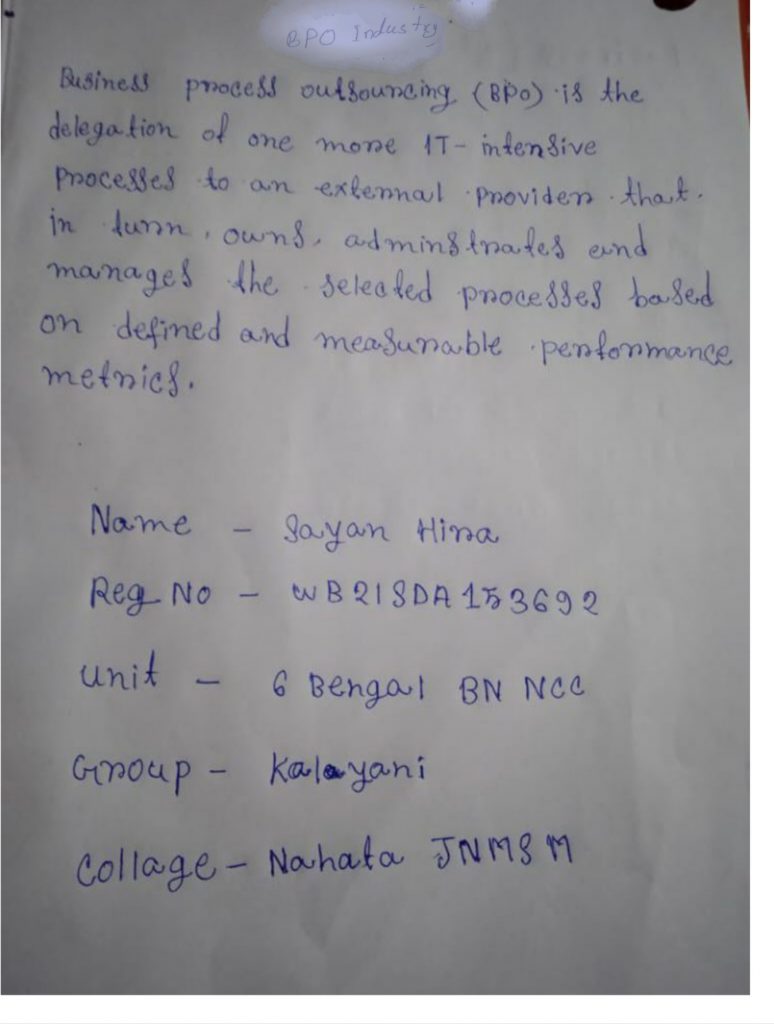 BPO Industry
Business process outsourcing (BPO) is the
delegation of one more IT- intensive
processes to an external provider that
in turn, owns, adminstrates and
manages the selected processes based
on defined and measurable performance
metrics.
Name - Sayan Hira
Reg No - WB21SDA153692
Unit - 6 Bengal BN NCC
Group - Kalayani
Collage - Nahata JNMSM